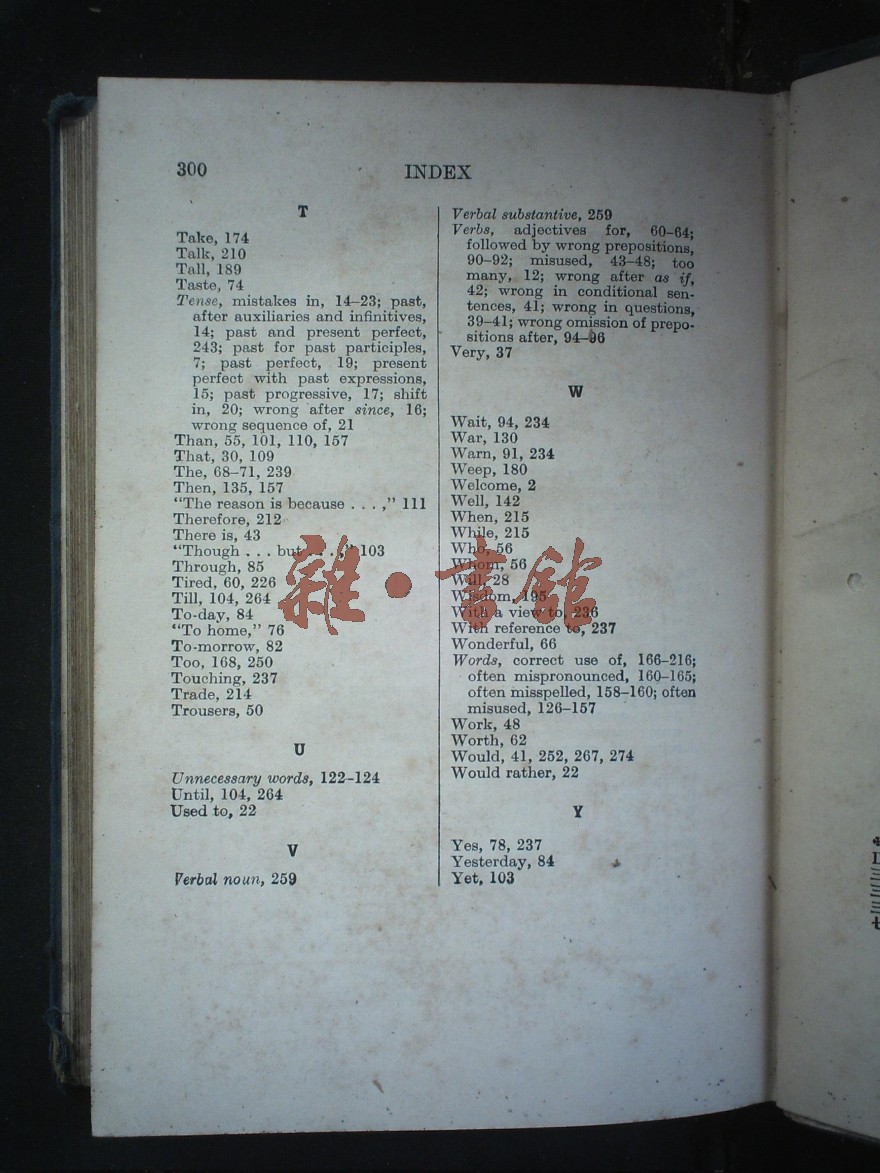 300 INDEX
T
Take, 174
Talk, 210
Tall, 189
Taste, 74
Tense, mistakes in, 14–23; past,
after auxiliaries and infinitives,
14; past and present perfect,
243; past for past participles,
7; past perfect, 19; present
perfect with past expressions,
15; past progressive, 17; shift
in, 20; wrong after since, 16;
wrong sequence of, 21
Than, 55, 101, 110, 157
That, 30, 109
The, 68–71, 239
Then, 135, 157
“The reason is because . . . ,” 111
Therefore, 212
There is, 43
“Though . . . but . . . ,” 103
Through, 85
Tired, 60, 226
Till, 104, 264
To-day, 84
“To home,” 76
To-morrow, 82
Too, 168, 250
Touching, 237
Trade, 214
Trousers, 50
U
Unnecessary words, 122–124
Until, 104, 264
Used to, 22
V
Verbal noun, 259
Verbal substantive, 259
Verbs, adjectives for, 60–64;
followed by wrong prepositions,
90–92; misused, 43–48; too
many, 12; wrong after as if,
42; wrong in conditional sen-
tences, 41; wrong in questions,
39–41; wrong omission of prepo-
sitions after, 94–96
Very, 37
W
Wait, 94, 234
War, 130
Warn, 91, 234
Weep, 180
Welcome, 2
Well, 142
When, 215
While, 215
Who, 56
Whom, 56
Will, 28
Wisdom, 195
With a view to, 236
With reference to, 237
Wonderful, 66
Words, correct use of, 166–216;
often mispronounced, 160–165;
often misspelled, 158–160; often
misused, 126–157
Work, 48
Worth, 62
Would, 41, 252, 267, 274
Would rather, 22
Y
Yes, 78, 237
Yesterday, 84
Yet, 103
雜·書館